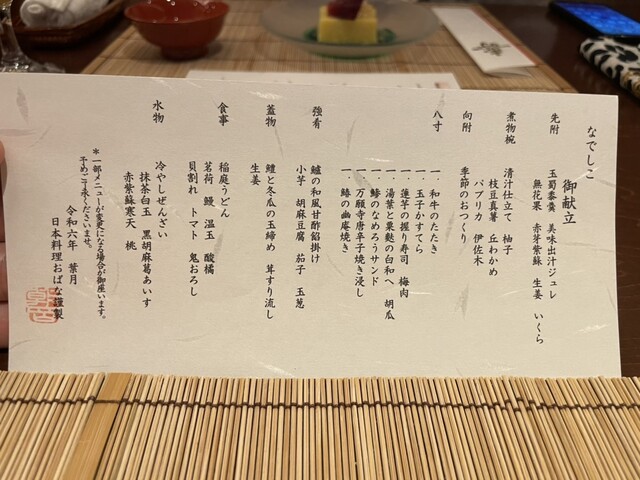 なでしこ
御献立
先附
玉蜀黍羹 美味出汁ジュレ
無花果 赤芽紫蘇 生姜 いくら
煮物椀
清汁仕立て 柚子
枝豆真薯 丘わかめ
パプリカ 伊佐木
向附
季節のおつくり
八寸
一、和牛のたたき
一、玉子かすてら
一、蓮芋の握り寿司 梅肉
一、湯葉と粟麩の白和へ 胡瓜
一、鯵のなめろうサンド
一、万願寺唐辛子焼き浸し
一、鰆の幽庵焼き
強肴
鱸の和風甘酢餡掛け
小芋 胡麻豆腐 茄子 玉葱
蓋物
鱧と冬瓜の玉締め 茸すり流し
生姜
食事
稲庭うどん
茗荷 鰻 温玉 酸橘
貝割れ トマト 鬼おろし
水物
冷やしぜんざい
抹茶白玉 黒胡麻葛あいす
赤紫蘇寒天 桃
＊一部メニューが変更になる場合が御座います。
予めご了承くださいませ。
令和六年 葉月
日本料理おばな謹製